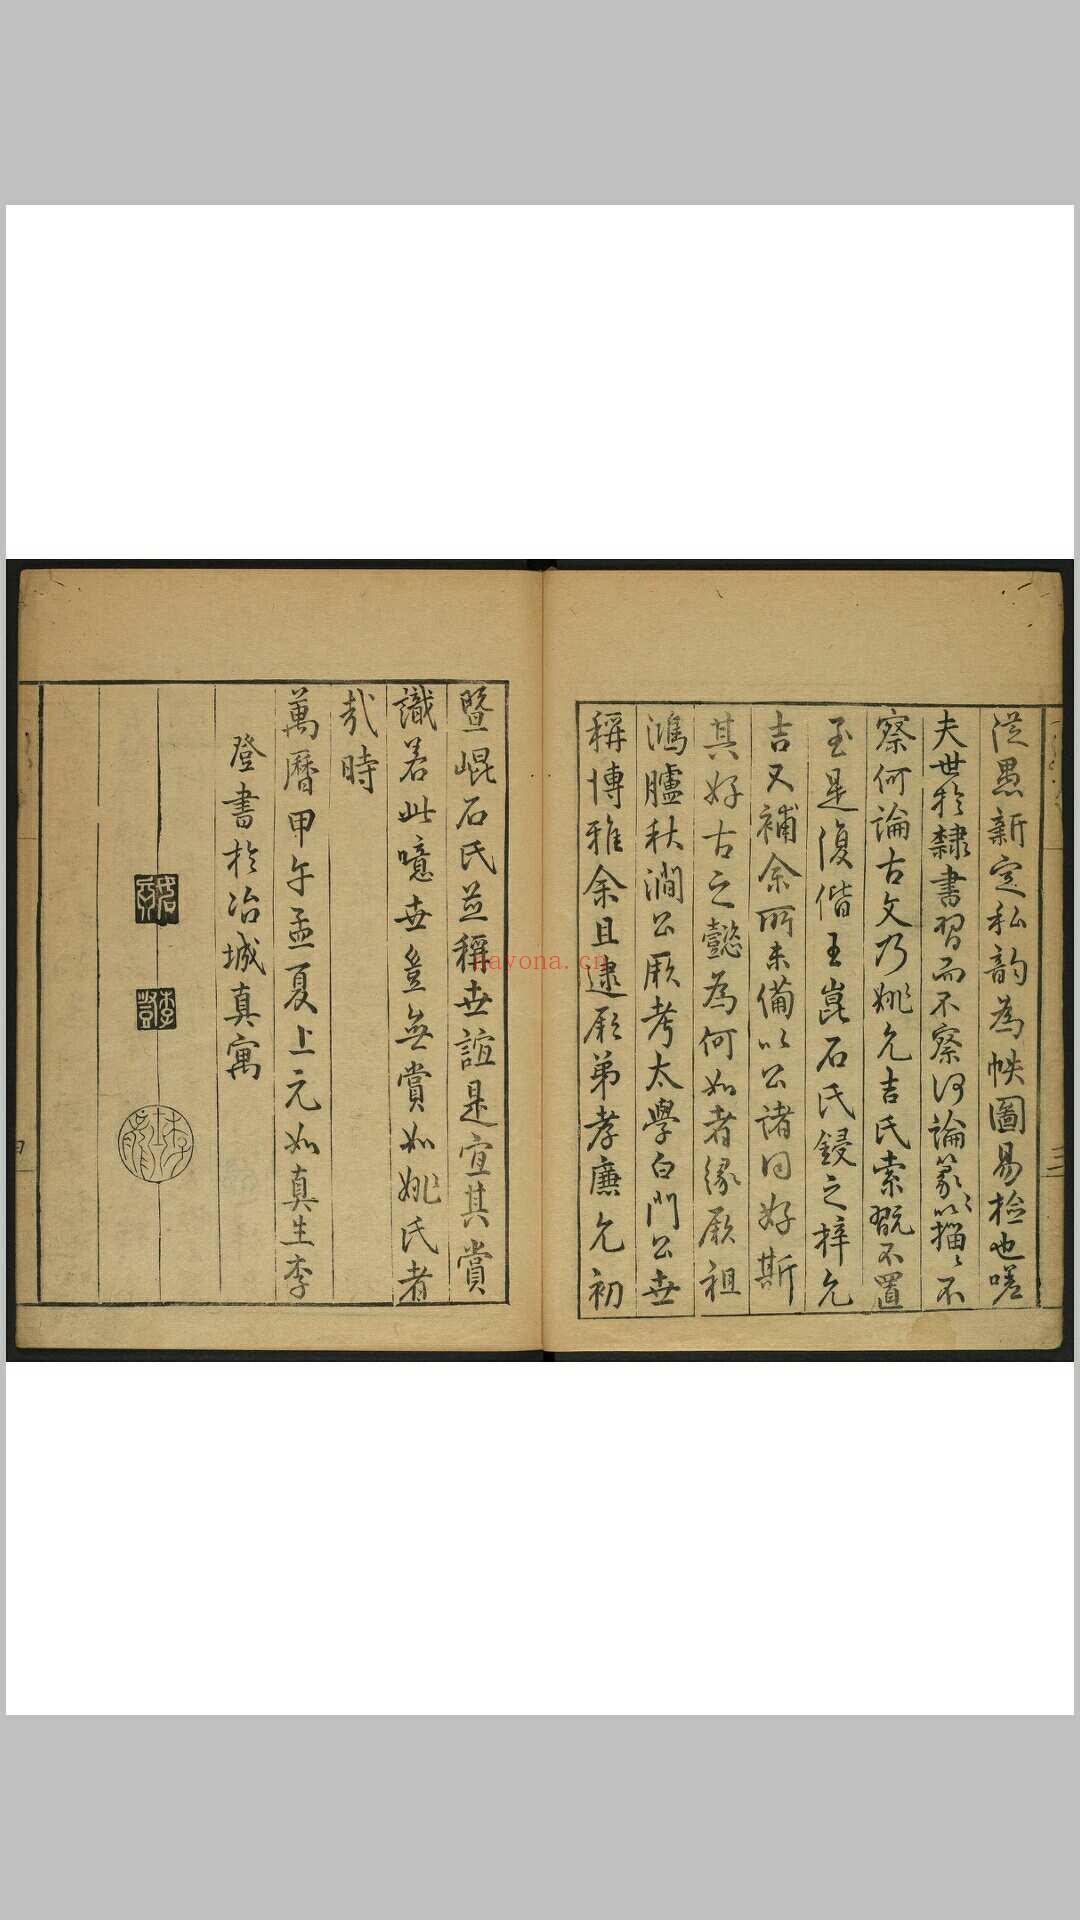 從愚新定私韵為帙圖易檢也嗟
夫世於隸書習而不察何論篆籀籀不
察何論古文乃姚允吉氏索翫不置
至是復偕王崑石氏鋟之梓允
吉又補余所未備以公諸同好斯
其好古之懿為何如者緣厥祖
鴻臚秋澗公厥考太學白門公世
稱博雅余且逮厥弟孝廉允初
暨崐石氏並稱世誼是宜其賞
識若此噫世豈無賞如姚氏者
哉時
萬曆甲午孟夏上元如真生李
登書於冶城真寓
李登
nayona.cn